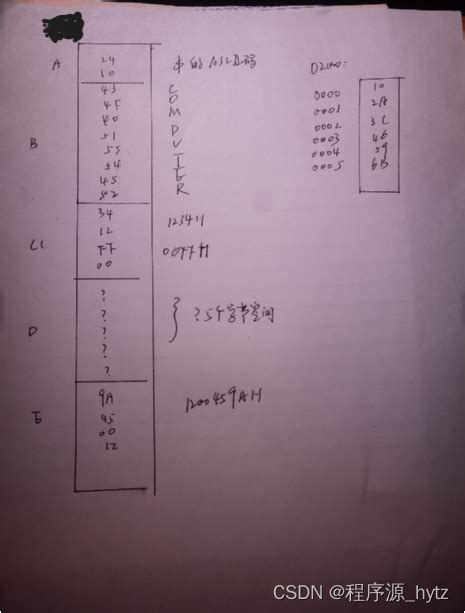 A 24 串的ASCII码 D2000:
10
B 43 C 0000 10
4F O 0001 2A
M 0002 3C
51 P 0003 46
55 U 0004 59
54 T 0005 6B
45 E
52 R
C1 34
12 1234H
FF 00FFH
00
D ?
? }?5个字节空间
?
?
?
E 9A 1200459AH
45
00
12
CSDN @程序源_hytz